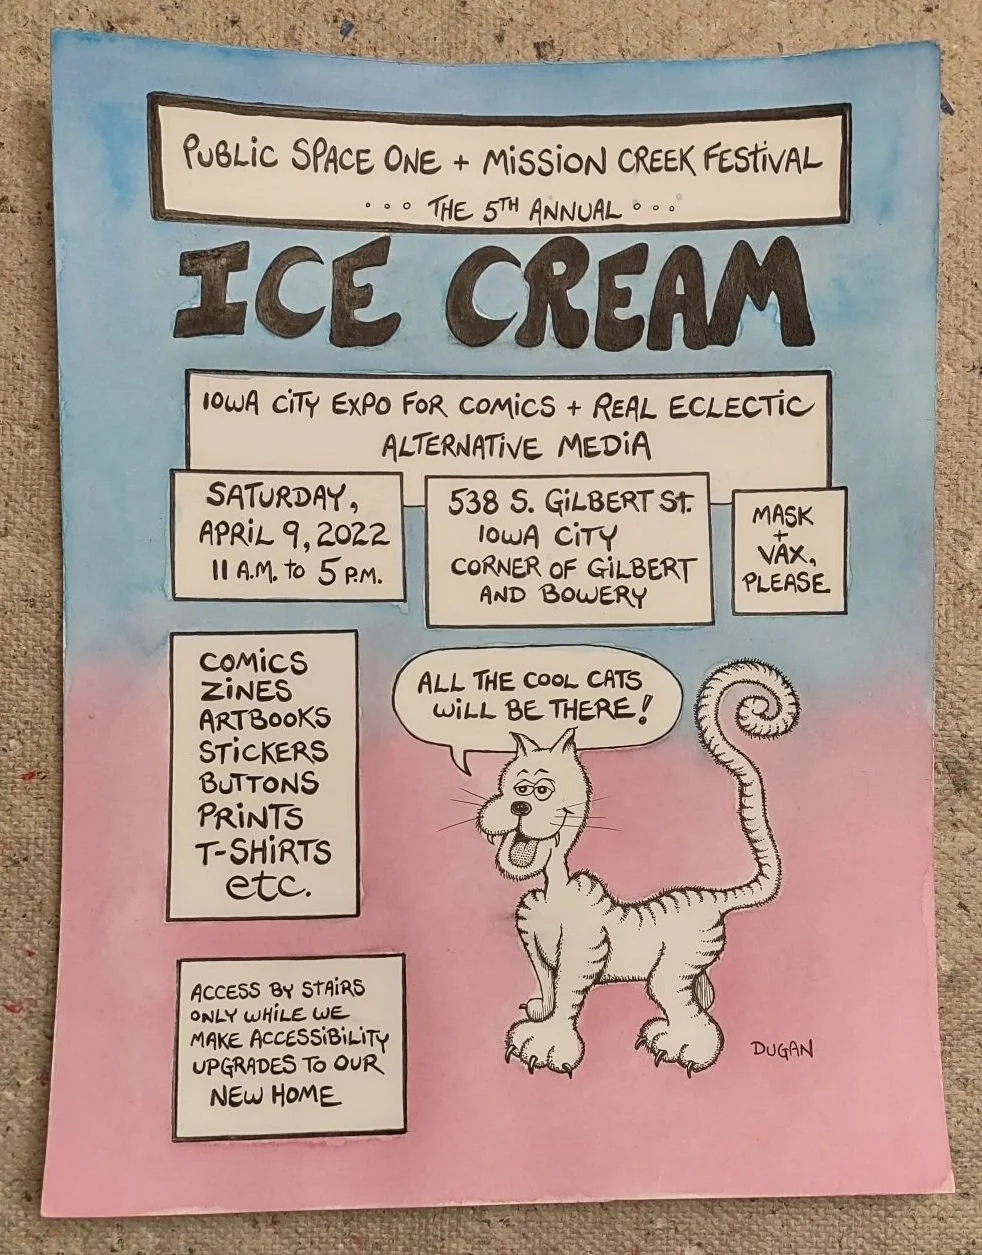 PUBLIC SPACE ONE + MISSION CREEK FESTIVAL
... THE 5TH ANNUAL ...
ICE CREAM
IOWA CITY EXPO FOR COMICS + REAL ECLECTIC
ALTERNATIVE MEDIA
SATURDAY,
APRIL 9, 2022
11 A.M. to 5 P.M.
538 S. GILBERT St.
IOWA CITY
CORNER OF GILBERT
AND BOWERY
MASK
+
VAX,
PLEASE
COMICS
ZINES
ARTBOOKS
STICKERS
BUTTONS
PRINTS
T-SHIRTS
etc.
ALL THE COOL CATS
WILL BE THERE!
ACCESS BY STAIRS
ONLY WHILE WE
MAKE ACCESSIBILITY
UPGRADES TO OUR
NEW HOME
DUGAN